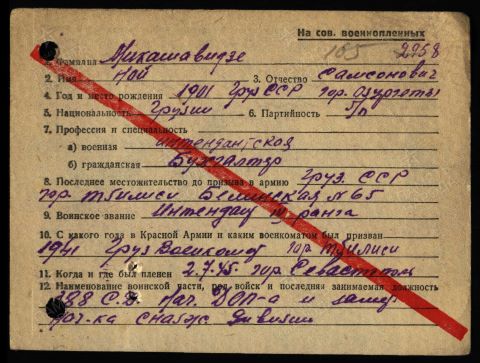 На сов. военнопленных
165 2258
1. Фамилия Микашавидзе
2. Имя Ной 3. Отчество Самсонович
4. Год и место рождения 1901 Груз ССР гор. Озургеты
5. Национальность Грузин 6. Партийность б/п
7. Профессия и специальность
а) военная интендантская
б) гражданская Бухгалтер
8. Последнее местожительство до призыва в армию Груз. ССР
гор. Тбилиси Белинская № 65
9. Воинское звание Интендант III ранга
10. С какого года в Красной Армии и каким военкоматом был призван
1941 Груз Военкомат гор Тбилиси
11. Когда и где был пленен 2.7.45. гор. Севастопол
12. Наименование воинской части, род войск и последняя занимаемая должность
388 С.Д. Нач. ДОП-а и замес
нач-ка снабж дивизии